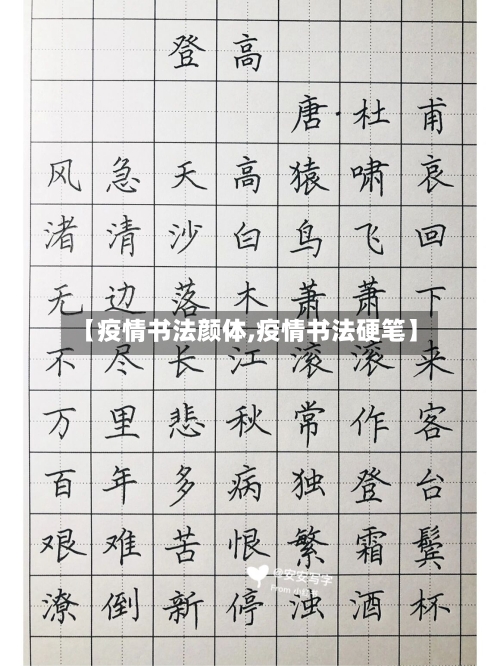 登高
唐·杜甫
风急天高猿啸哀
渚清沙白鸟飞回
无边落木萧萧下
【疫情书法颜体,疫情书法硬笔】
不尽长江滚滚来
万里悲秋常作客
百年多病独登台
艰难苦恨繁霜鬓
@安安写字
From 小红书
潦倒新停浊酒杯